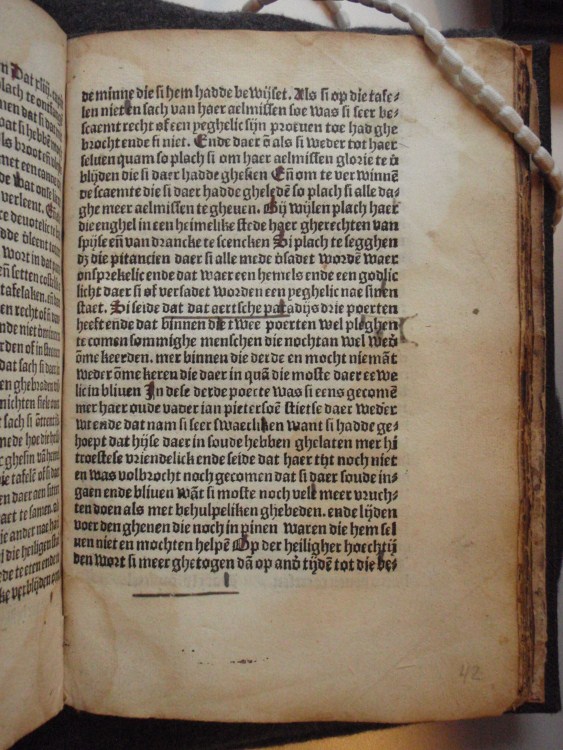 de minne die si hem hadde bewijset. Als si op die tafe⸗
len niet en sach van haer aelmissen soe was si seer be⸗
scaemt recht of een yeghelic sijn proeuen toe had ghe
brocht ende si niet. Ende daer ō als si weder tot haer
seluen quam so plach si om haer aelmissen glorie te v̄
blijden die si daer hadde ghesien Eñ om te ver winnē
de scaemte die si daer hadde ghelede͂ so plach si alle da⸗
ghe meer aelmissen te gheuen. Bij wijlen plach haer
die enghel in een heimelike stede haer gherechten van
spijse eñ van drancke te scencken Si plach te segghen
dz die pitancien daer si alle mede v̄sadet wordē waer
onsprekelic ende dat waer een hemels ende een godlic
licht daer si of versadet worden een yeghelic nae sinen
staet. Si seide dat dat aertsche paradijs drie poerten
heeft ende dat binnen die twee poerten wel pleghen
te comen sommighe menschen die nochtan wel wed̄
ōme keerden. mer binnen die derde en mocht niemāt
weder ōme keren die daer in quā die moste daer eewe
lic in bliuen In dese derde poerte was si eens gecomē
mer haer oude vader ian pietersoē stietse daer weder
wt ende dat nam si seer swaerliken want si hadde ge⸗
hoept dat hijse daer in soude hebben ghelaten mer hi
troestese vriendelick ende seide dat haer tijt noch niet
en was volbrocht noch gecomen dat si daer soude in⸗
gaen ende bliuen wāt si moste noch vele meer vruch⸗
ten doen als met behulpeliken ghebeden. ende lijden
voer den ghenen die noch in pinen waren die hem sel
uen niet en mochten helpē Op der heiligher hoechtij
den wort si meer ghetogen dā op and̄ tijdē tot die bes⸗
42